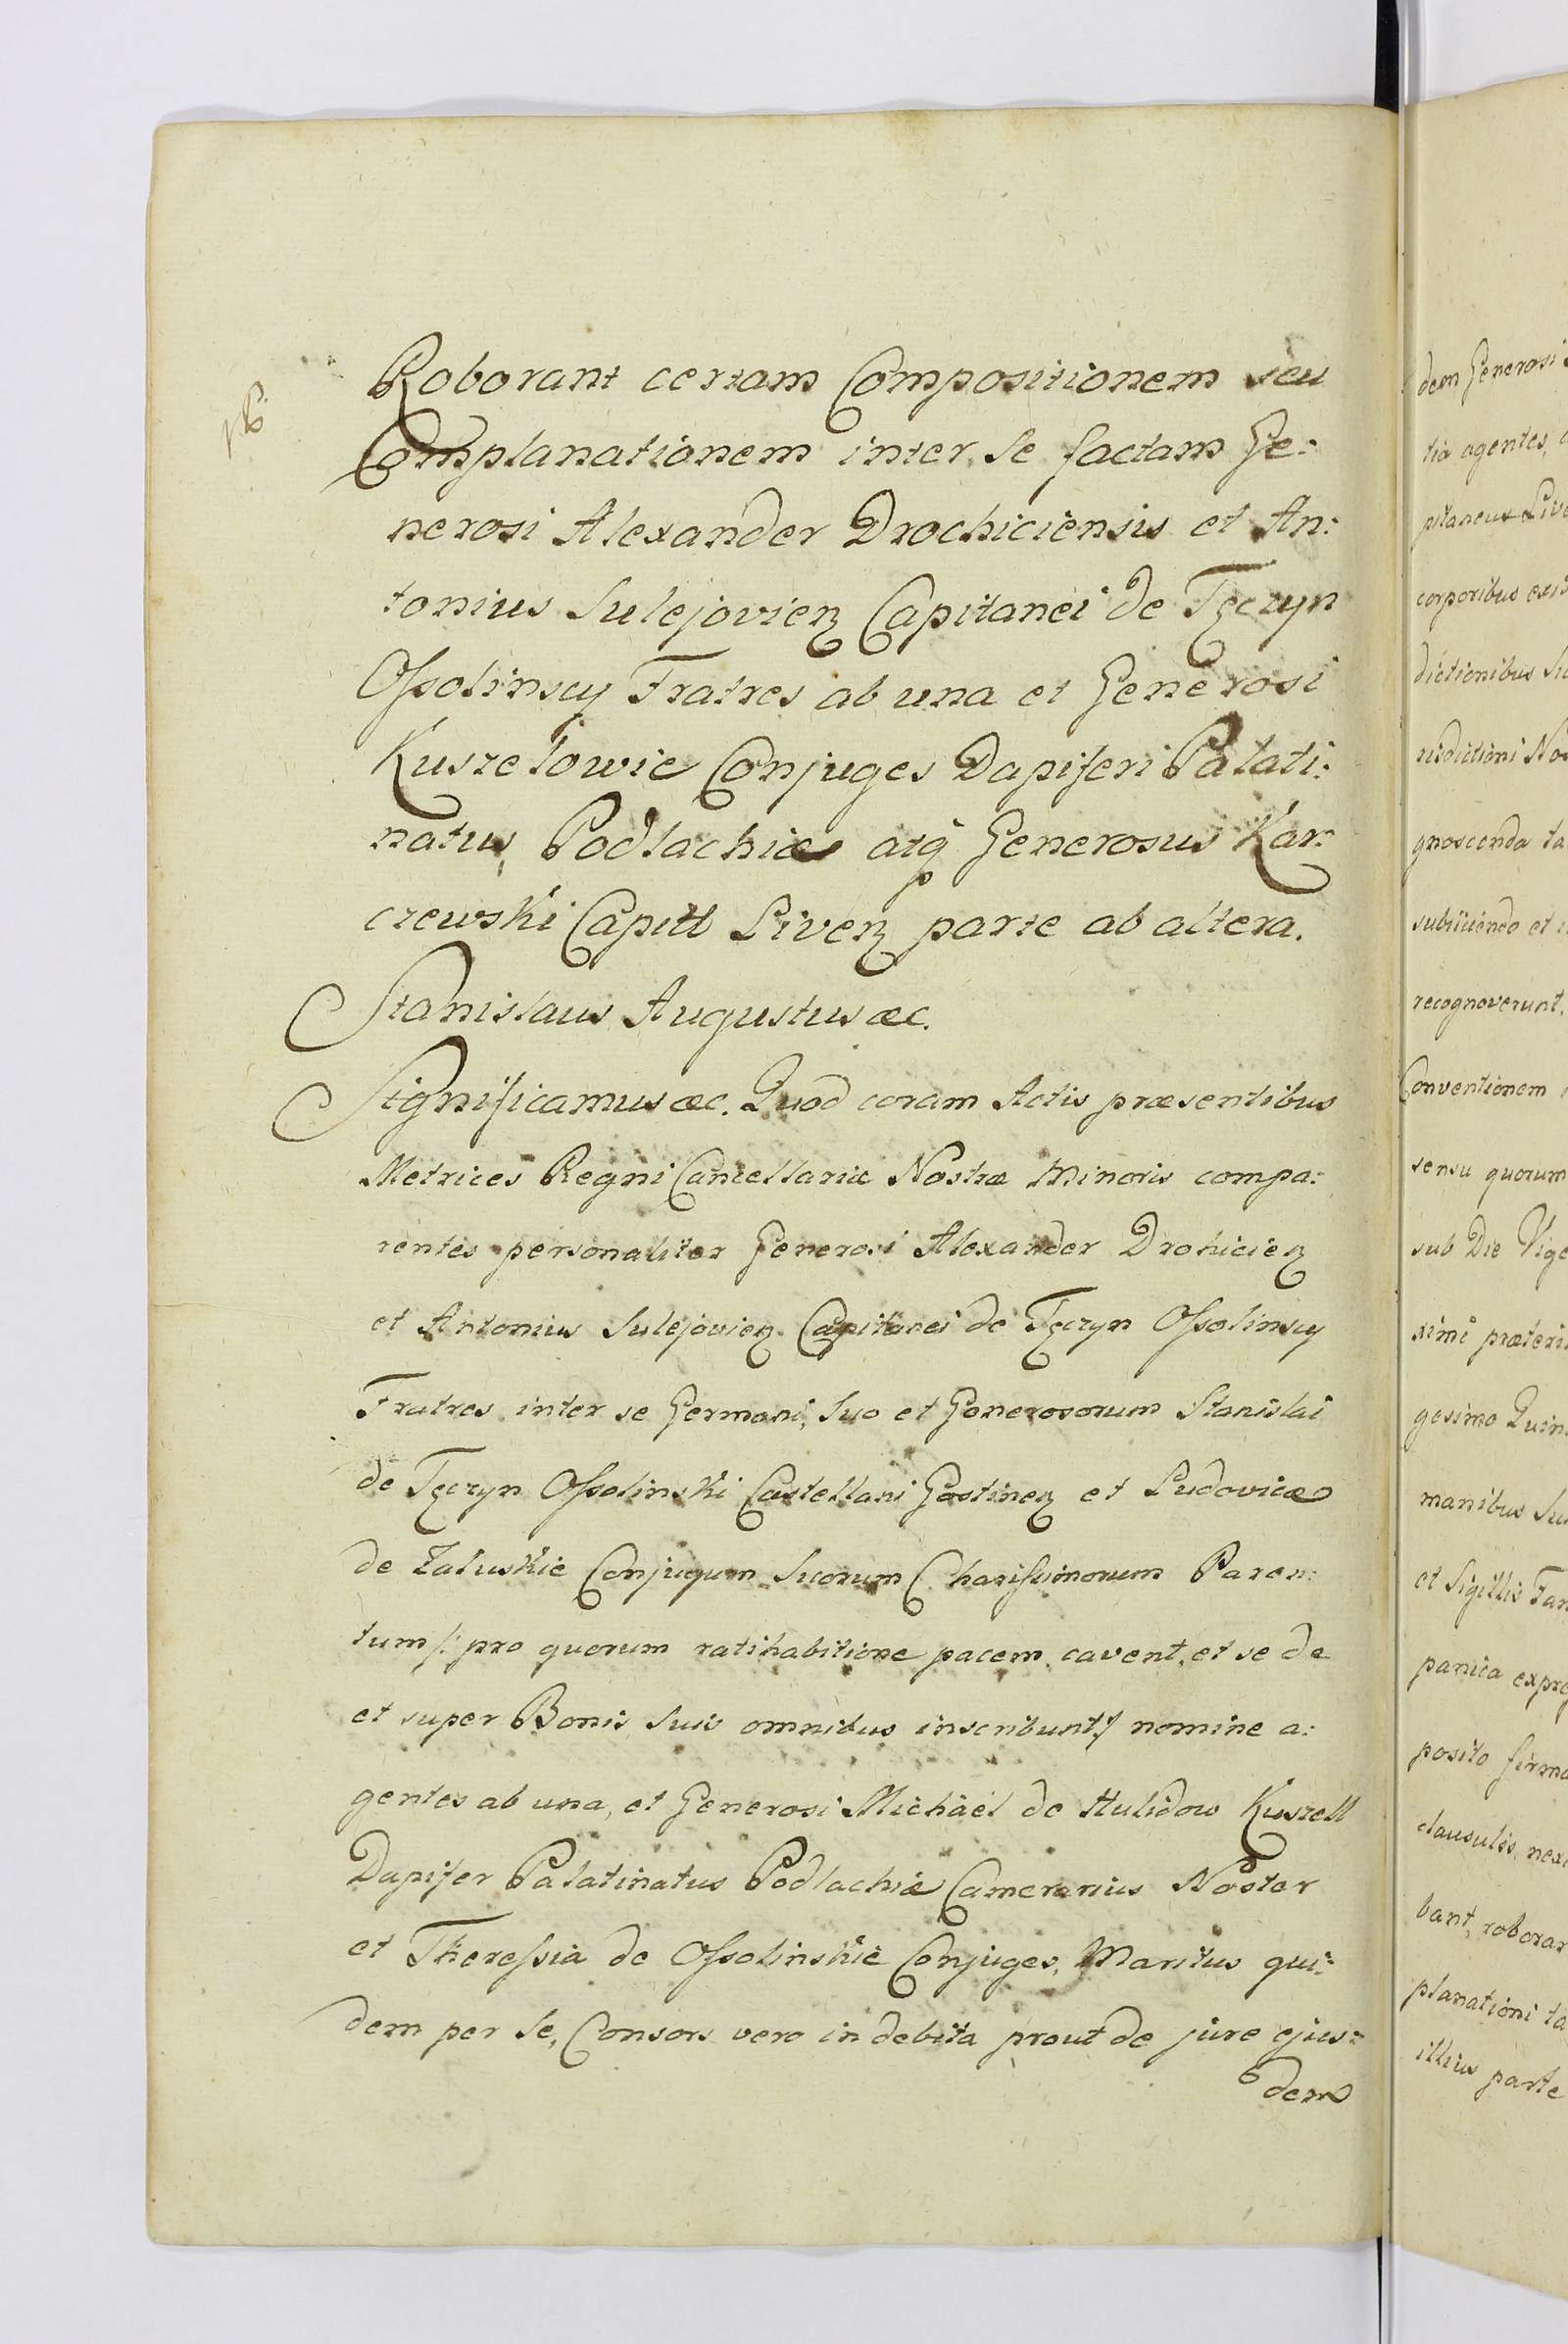 Roborant certam Compositionem seu
Complanationem inter Se factam Ge:
nerosi Alexander Drochiciensis et An:
tonius Sulejovien Capitanei de Tęczyn
Ossolinscy Fratres ab una et Generosi
Kuszelowie Conjuges Dapiferi Palati:
natus Podlachiæ atq Generosus Kar:
czewski Capitt Liven parte ab altera.
Stanislaus Augustus æc.
Significamus æc. Quod coram Actis præsentibus
Metrices Regni Cancellariæ Nostræ Minoris compa:
rentes personaliter Generosi Alexander Drohicien
et Antonius Sulejovien Capitanei de Tęczyn Ossolinscy
Fratres inter se Germani, Suo et Generosorum Stanislai
de Tęczyn Ossolinski Castellani Gostinen et Ludovicæ
de Załuskie Conjugum Suorum Charissimorum Paren:
tum /: pro quorum ratihabitione pacem cavent, et se de
et super Bonis Suis omnibus inscribunt :/ nomine a:
gentes ab una, et Generosi Michäel de Hulidow Kuszell
Dapifer Palatinatus Podlachiæ Camerarius Noster
et Theressia de Ossolinskie Conjuges, Maritus qui:
dem per Se, Consors vero in debita prout de jure ejus:
dem
dem Generosi
tia agentes,
pitaneus Liv
corporibus
dictionibus
risdictioni
gnoscenda ta
subiiciendo et
recognoverunt.
Conventionem
sensu quorum
sub Die Vige
ximi præteri
gesimo Quin
manibus Su
et Sigillis Fam
panica expre
posito firma
clausulis, nexi
bant, roborar
planationi ta
illius parte